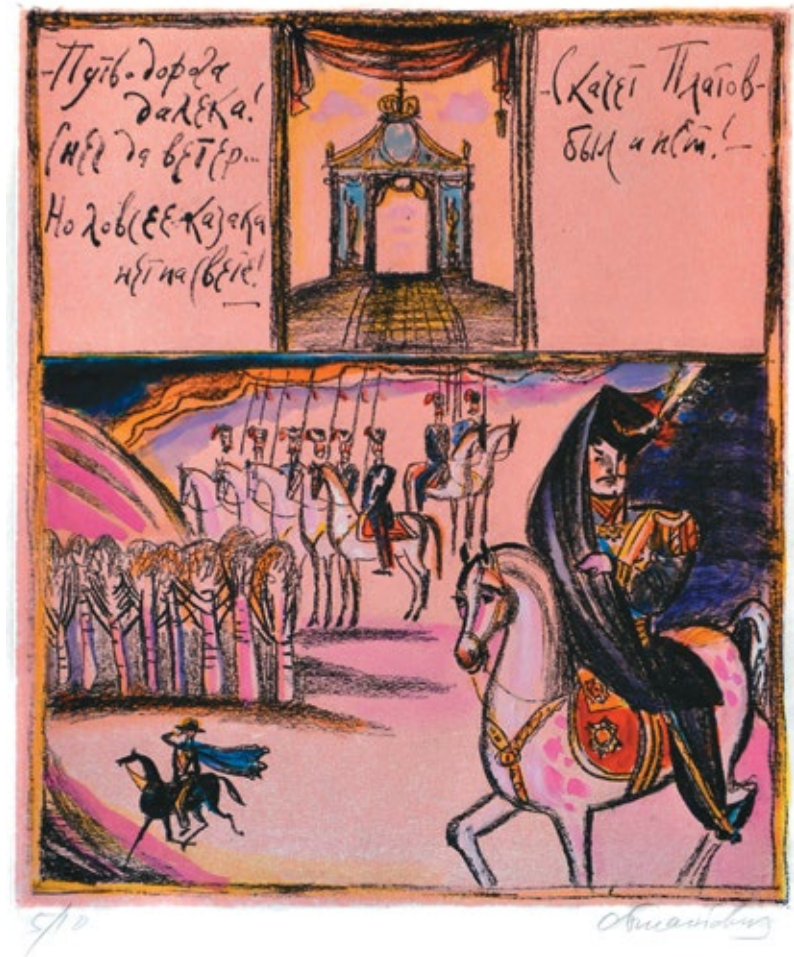 -Путь-дорога
далека!
Снег да ветер...
Но ловчее казака
нет на свете!
-Скачет Платов-
был и нет!-
5/10